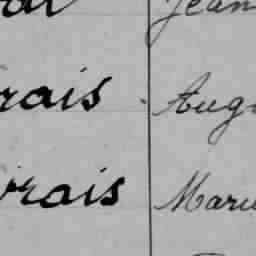 Jean
rais Aug
vrais Mari